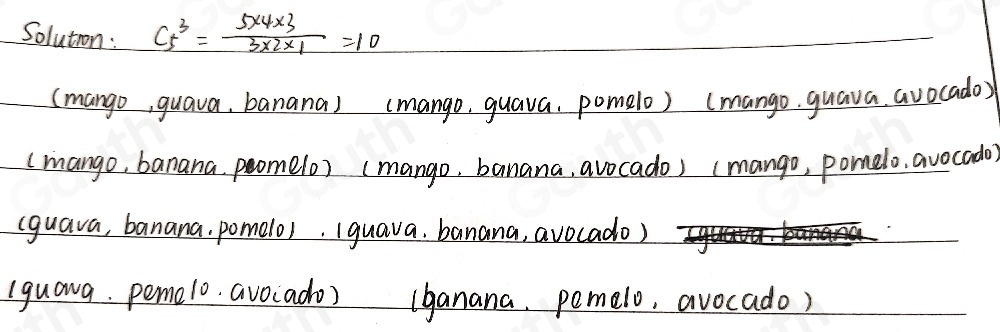 Solution: C₅³ = 5×4×3 / 3×2×1 = 10
(mango, guava, banana) (mango, guava, pomelo) (mango, guava, avocado)
(mango, banana, pomelo) (mango, banana, avocado) (mango, pomelo, avocado)
(guava, banana, pomelo). (guava, banana, avocado)
(guava, pemelo, avocado) (banana, pemelo, avocado)